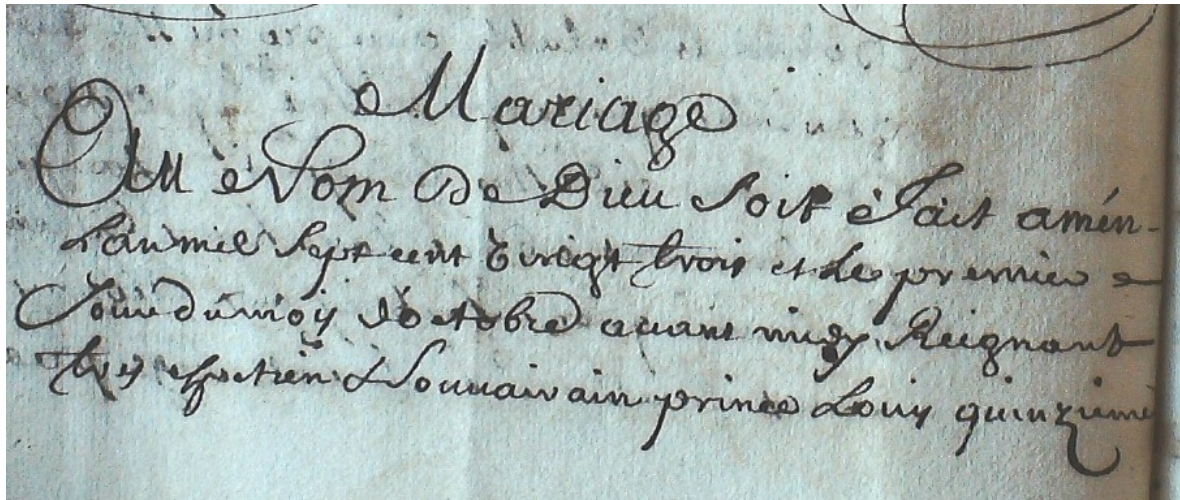 Mariage
Au Nom De Dieu soit fait amén.
L'an mil sept cent vingt trois et le premier
Jour du moy d'octobre avant midy Reignant
tres chretien & Souuairain prince Louis quinzieme